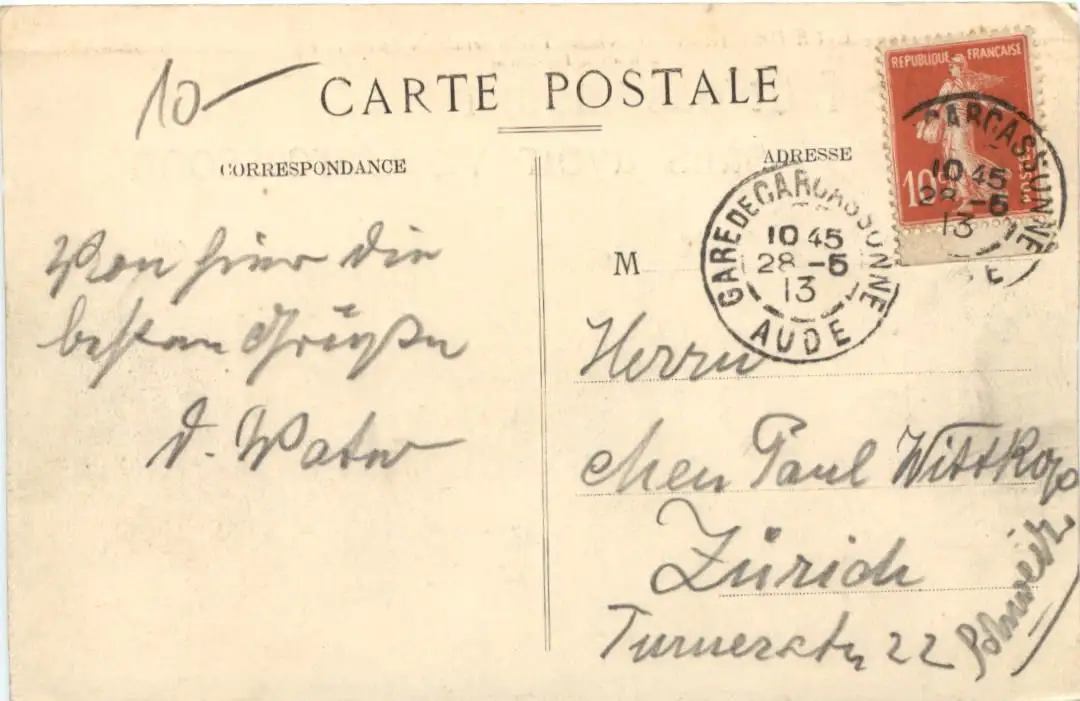 10
CARTE POSTALE
REPUBLIQUE FRANÇAISE
10
POSTES
CARCASSONNE
10 45
28 -5
13
CORRESPONDANCE
ADRESSE
GARE DE CARCASSONNE
10 45
28 -5
13
AUDE
Von hier die
besten Grüße
d. Vater
M
Herrn
Paul Wittkop
Zürich
Turnerstr 22
Schweiz